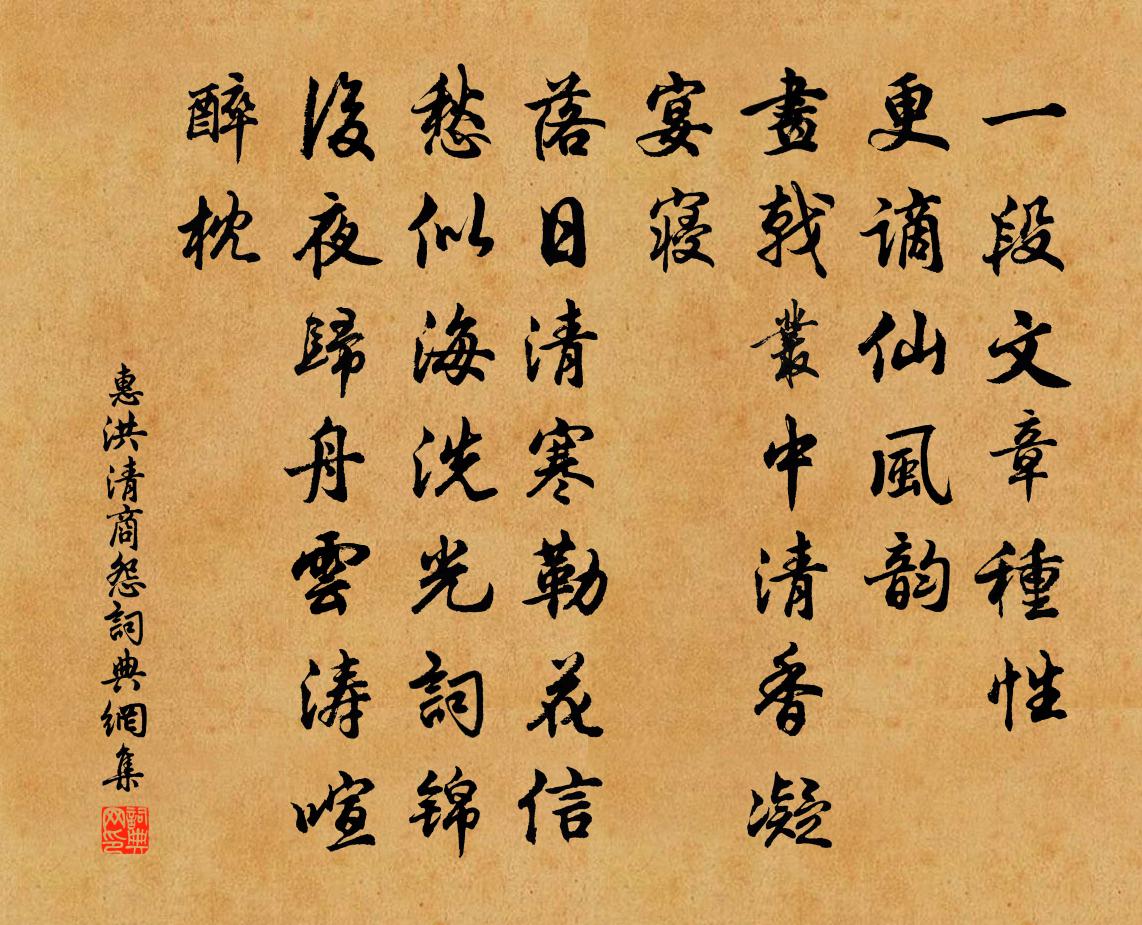 一段文章種性
更謫仙風韵
畫戟叢中清香凝
宴寝
落日清寒勒花信
愁似海洗光詞锦
後夜歸舟雲涛喧
醉枕
惠洪清商怨詞典網集
詞典
网印